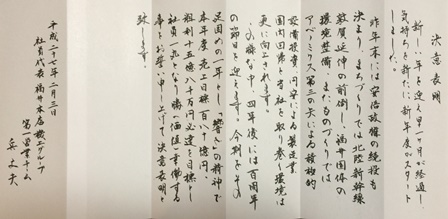 決意表明
新しい年を迎え早一ヶ月が経過し、
気持ちを新たに新年度がスタート
しました。
昨年末には安倍政権の続投も
決まり、まちづくりでは北陸新幹線
敦賀延伸の前倒し、福井国体の
環境整備、またものづくりでは
アベノミクス第三の矢による積極的
設備投資、円安による製造業
国内回帰と当社を取り巻く環境は
更に向上されます。
この様な中、四年後には百周年
の節目を迎えます。今期はその
足固めの一年とし「響き」の精神で
本年度売上目標百八十億円、
粗利十五億八千万円必達を目標とし
社員一丸となり勝つ(価値)事に執する
事をお誓い申し上げて決意表明と
致します。
平成二十七年二月三日
社員代表 福井本店 機工グループ
第一営業チーム